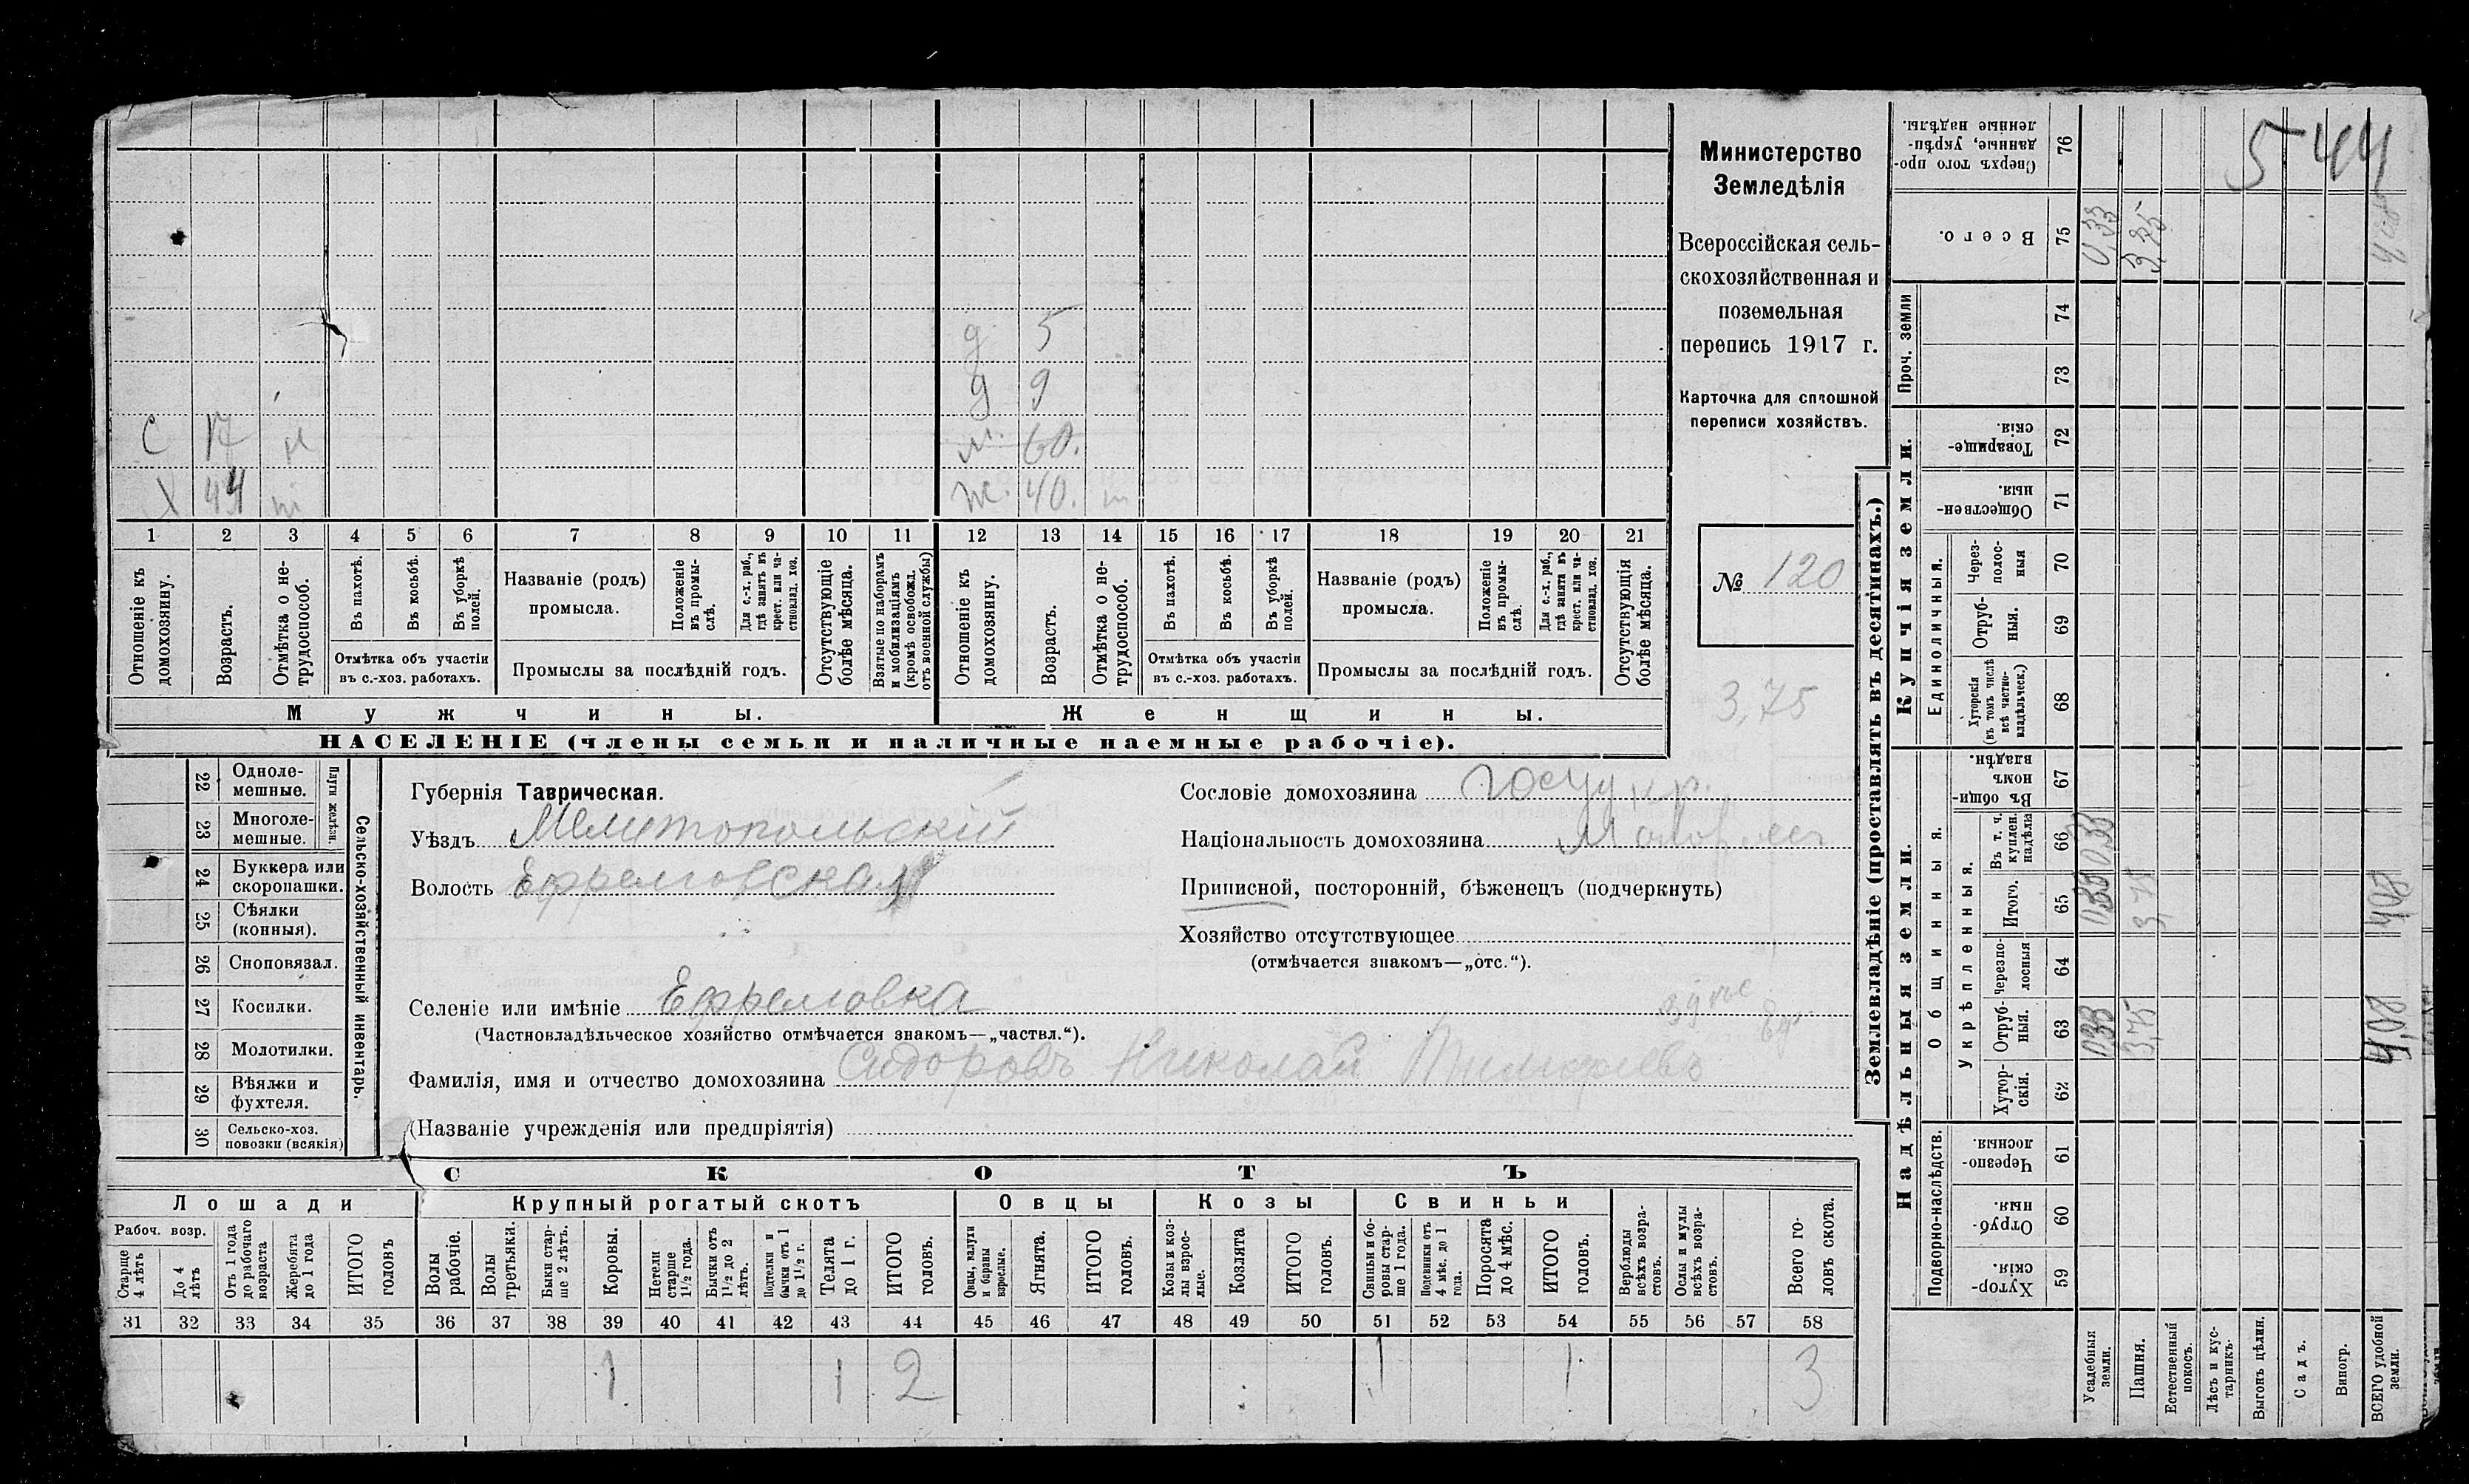 5 44
Министерство
Земледѣлія
Всероссійская сель-
скохозяйственная и
поземельная
перепись 1917 г.
Карточка для сплошной
переписи хозяйствъ.
№ 120
3,75
д 5
д 9
С 17 н
м. 60.
Х 44 ж. 40.
1 2 3 4 5 6 7 8 9 10 11 12 13 14 15 16 17 18 19 20 21
Отношеніе къ домохозяину.
Возрастъ.
Отмѣтка о не-
трудоспособ.
Въ пахотѣ.
Въ косьбѣ.
Въ уборкѣ полей.
Отмѣтка объ участіи
въ с.-хоз. работахъ.
Названіе (родъ)
промысла.
Положеніе въ промы-
слѣ.
Для с.-х. раб., гдѣ занятъ въ крест. или ча-
стновлад. хоз.
Промыслы за послѣдній годъ.
Отсутствующіе болѣе мѣсяца.
Взятые по наборамъ и мобилизаціямъ (кромѣ освобожд. отъ военной службы)
Отношеніе къ домохозяину.
Возрастъ.
Отмѣтка о не-
трудоспособ.
Въ пахотѣ.
Въ косьбѣ.
Въ уборкѣ полей.
Отмѣтка объ участіи
въ с.-хоз. работахъ.
Названіе (родъ)
промысла.
Положеніе въ промы-
слѣ.
Для с.-х. раб., гдѣ занята въ крест. или ча-
стновлад. хоз.
Промыслы за послѣдній годъ.
Отсутствующія болѣе мѣсяца.
Мужчины.
Женщины.
НАСЕЛЕНІЕ (члены семьи и наличные наемные рабочіе).
Сельско-хозяйственный инвентарь.
Плуги желѣзн.
22 Одноле-
мешные.
23 Многоле-
мешные.
24 Буккера или
скоропашки.
25 Сѣялки
(конныя).
26 Сноповязал.
27 Косилки.
28 Молотилки.
29 Вѣялки и
фухтеля.
30 Сельско-хоз.
повозки (всякія)
Губернія Таврическая.
Уѣздъ Мелитопольскій
Волость Ефремовская
Сословіе домохозяина госуд кр.
Національность домохозяина Малоросс
Приписной, посторонній, бѣженецъ (подчеркнуть)
Хозяйство отсутствующее
(отмѣчается знакомъ—„отс.“).
Селеніе или имѣніе Ефремовка
(Частновладѣльческое хозяйство отмѣчается знакомъ—„частвл.“).
Фамилія, имя и отчество домохозяина Сидоровъ Николай Тимофеевъ
(Названіе учрежденія или предпріятія)
СКОТЪ
Лошади
Крупный рогатый скотъ
Овцы
Козы
Свиньи
Рабоч. возр.
Старше 4 лѣтъ
До 4 лѣтъ
Отъ 1 года до рабочаго возраста
Жеребята до 1 года
ИТОГО головъ
Волы рабочіе.
Волы третьяки.
Быки стар-
ше 2 лѣтъ.
Коровы.
Нетели старше 1½ года.
Бычки отъ 1½ до 2 лѣтъ.
Подтелки и бычки отъ 1 до 1½ г.
Телята до 1 г.
ИТОГО головъ.
Овцы, валухи и бараны взрослые.
Ягнята.
ИТОГО головъ.
Козы и коз-
лы взрос-
лые.
Козлята
ИТОГО головъ.
Свиньи и бо-
ровы стар-
ше 1 года.
Подсвинки отъ 4 мѣс. до 1 года.
Поросята до 4 мѣс.
ИТОГО головъ.
Верблюды всѣхъ возра-
стовъ.
Ослы и мулы всѣхъ возра-
стовъ.
Всего го-
ловъ скота.
31 32 33 34 35 36 37 38 39 40 41 42 43 44 45 46 47 48 49 50 51 52 53 54 55 56 57 58
1 1 2 1 1 3
Землевладѣніе (проставлять въ десятинахъ.)
Надѣльныя земли.
Купчія земли.
Проч. земли
Подворно-наслѣдств.
Общинныя.
Укрѣпленныя.
Единоличныя.
59 Хутор-
скія.
60 Отруб-
ныя.
61 Черезпо-
лосныя.
62 Хутор-
скія.
63 Отруб-
ныя.
64 Черезпо-
лосныя
65 Итого.
66 Въ т. ч. куплен. надѣла
67 Въ общи-
номъ владѣн.
68 Хуторскія (въ томъ числѣ всѣ частно-
владѣльческ.)
69 Отруб-
ныя.
70 Через-
полос-
ныя
71 Обществен-
ныя.
72 Товарище-
скія.
73
74
75 Всего.
76 Сверхъ того про-
данные, укрѣп-
ленные надѣлы.
Усадебныя земли.
0,33 0,33 0,33 0,33
Пашня.
3,75 3,75 3,75
Естественный покосъ.
Лѣсъ и кус-
тарникъ.
Выгонъ цѣлин.
Садъ.
Виногр.
ВСЕГО удобной земли.
4,08 4,08 4,08